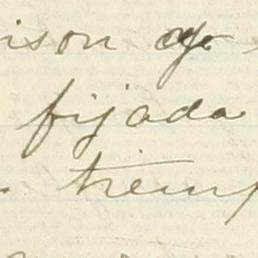 ison
fijada
. tiemp